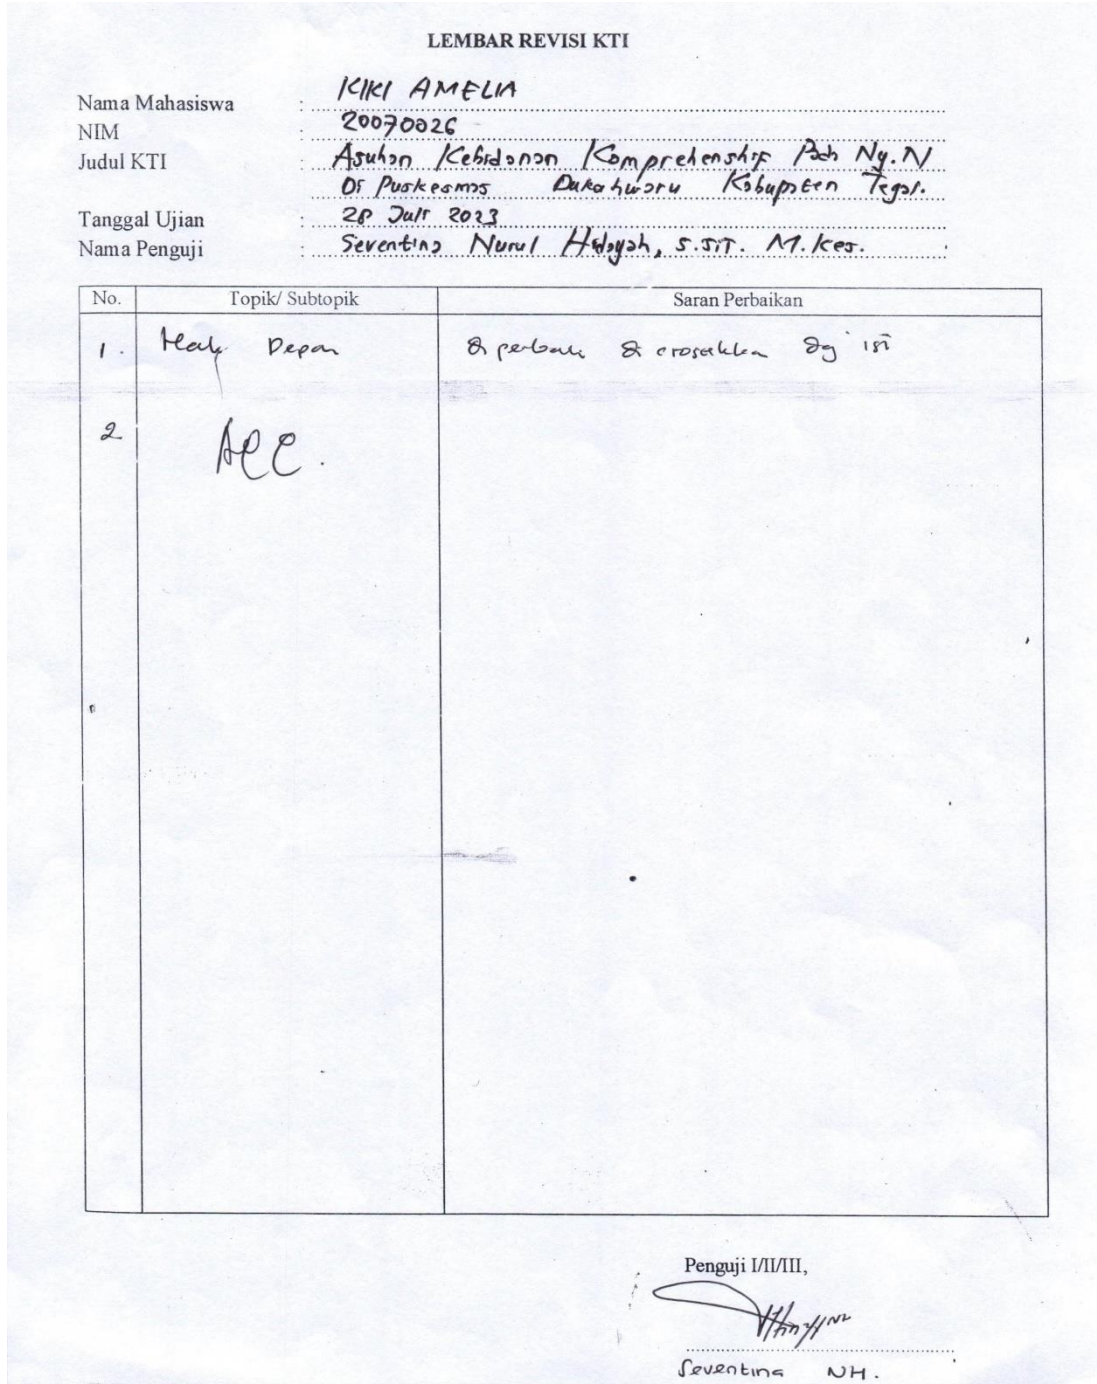 LEMBAR REVISI KTI
Nama Mahasiswa : KIKI AMELIA
NIM : 20070026
Judul KTI : Asuhan Kebidanan Komprehenship Pada Ny. N
Di Puskesmas Dukahwaru Kabupaten Tegal.
Tanggal Ujian : 28 Juli 2023
Nama Penguji : Seventina Nurul Hidayah, S.SiT. M.Kes.
No. Topik/ Subtopik Saran Perbaikan
1. Depan di dg isi
2 ACC.
Penguji I/II/III,
Seventina NH.